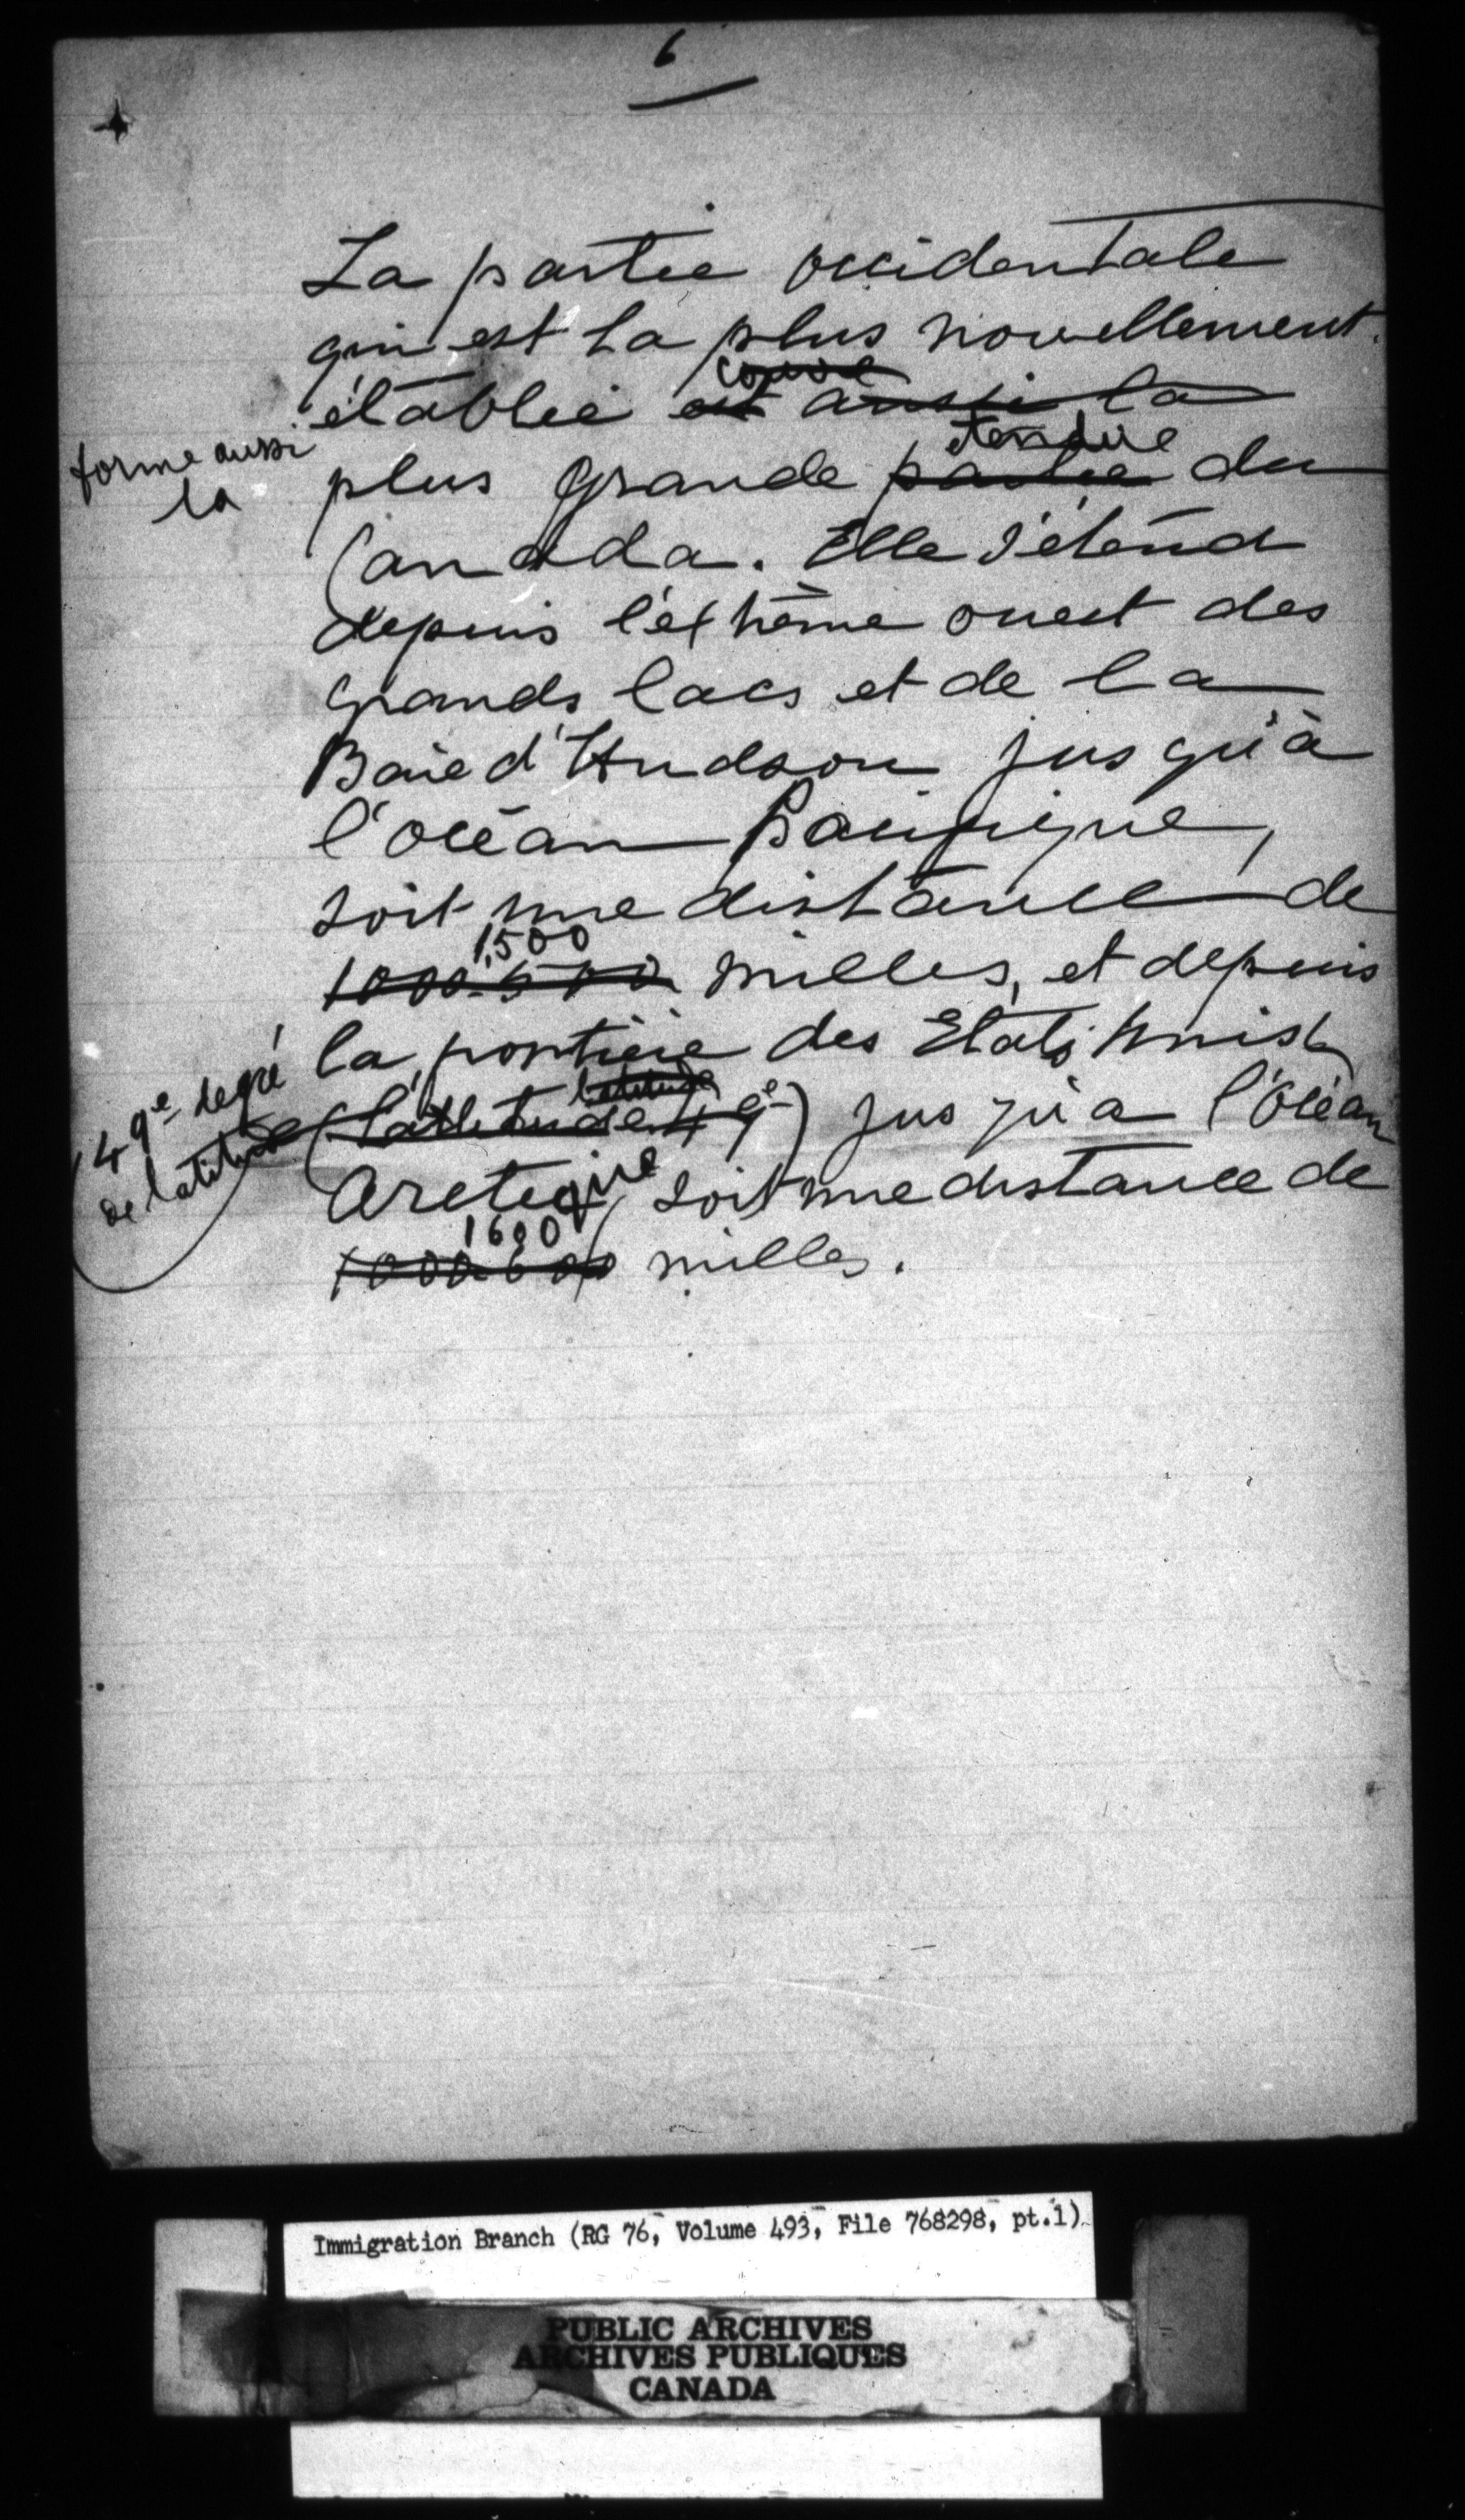 6
La partie occidentale
qui est la plus nouvellement
couvre
établie est aussi la
forme aussi
la
étendue
plus grande partie du
Canada. Elle s'étend
depuis l'extrême ouest des
grands lacs et de la
Baie d'Hudson jusqu'à
l'océan Pacifique,
soit une distance de
1,500
1000.500 milles, et depuis
la frontière des Etats Unis
49e degré
de latitude
latitude
(Lattitude 49e) jusqu'a l'Océan
Arctique, soit une distance de
1600
1000.600 milles.
Immigration Branch (RG 76, Volume 493, File 768298, pt.1)
PUBLIC ARCHIVES
ARCHIVES PUBLIQUES
CANADA